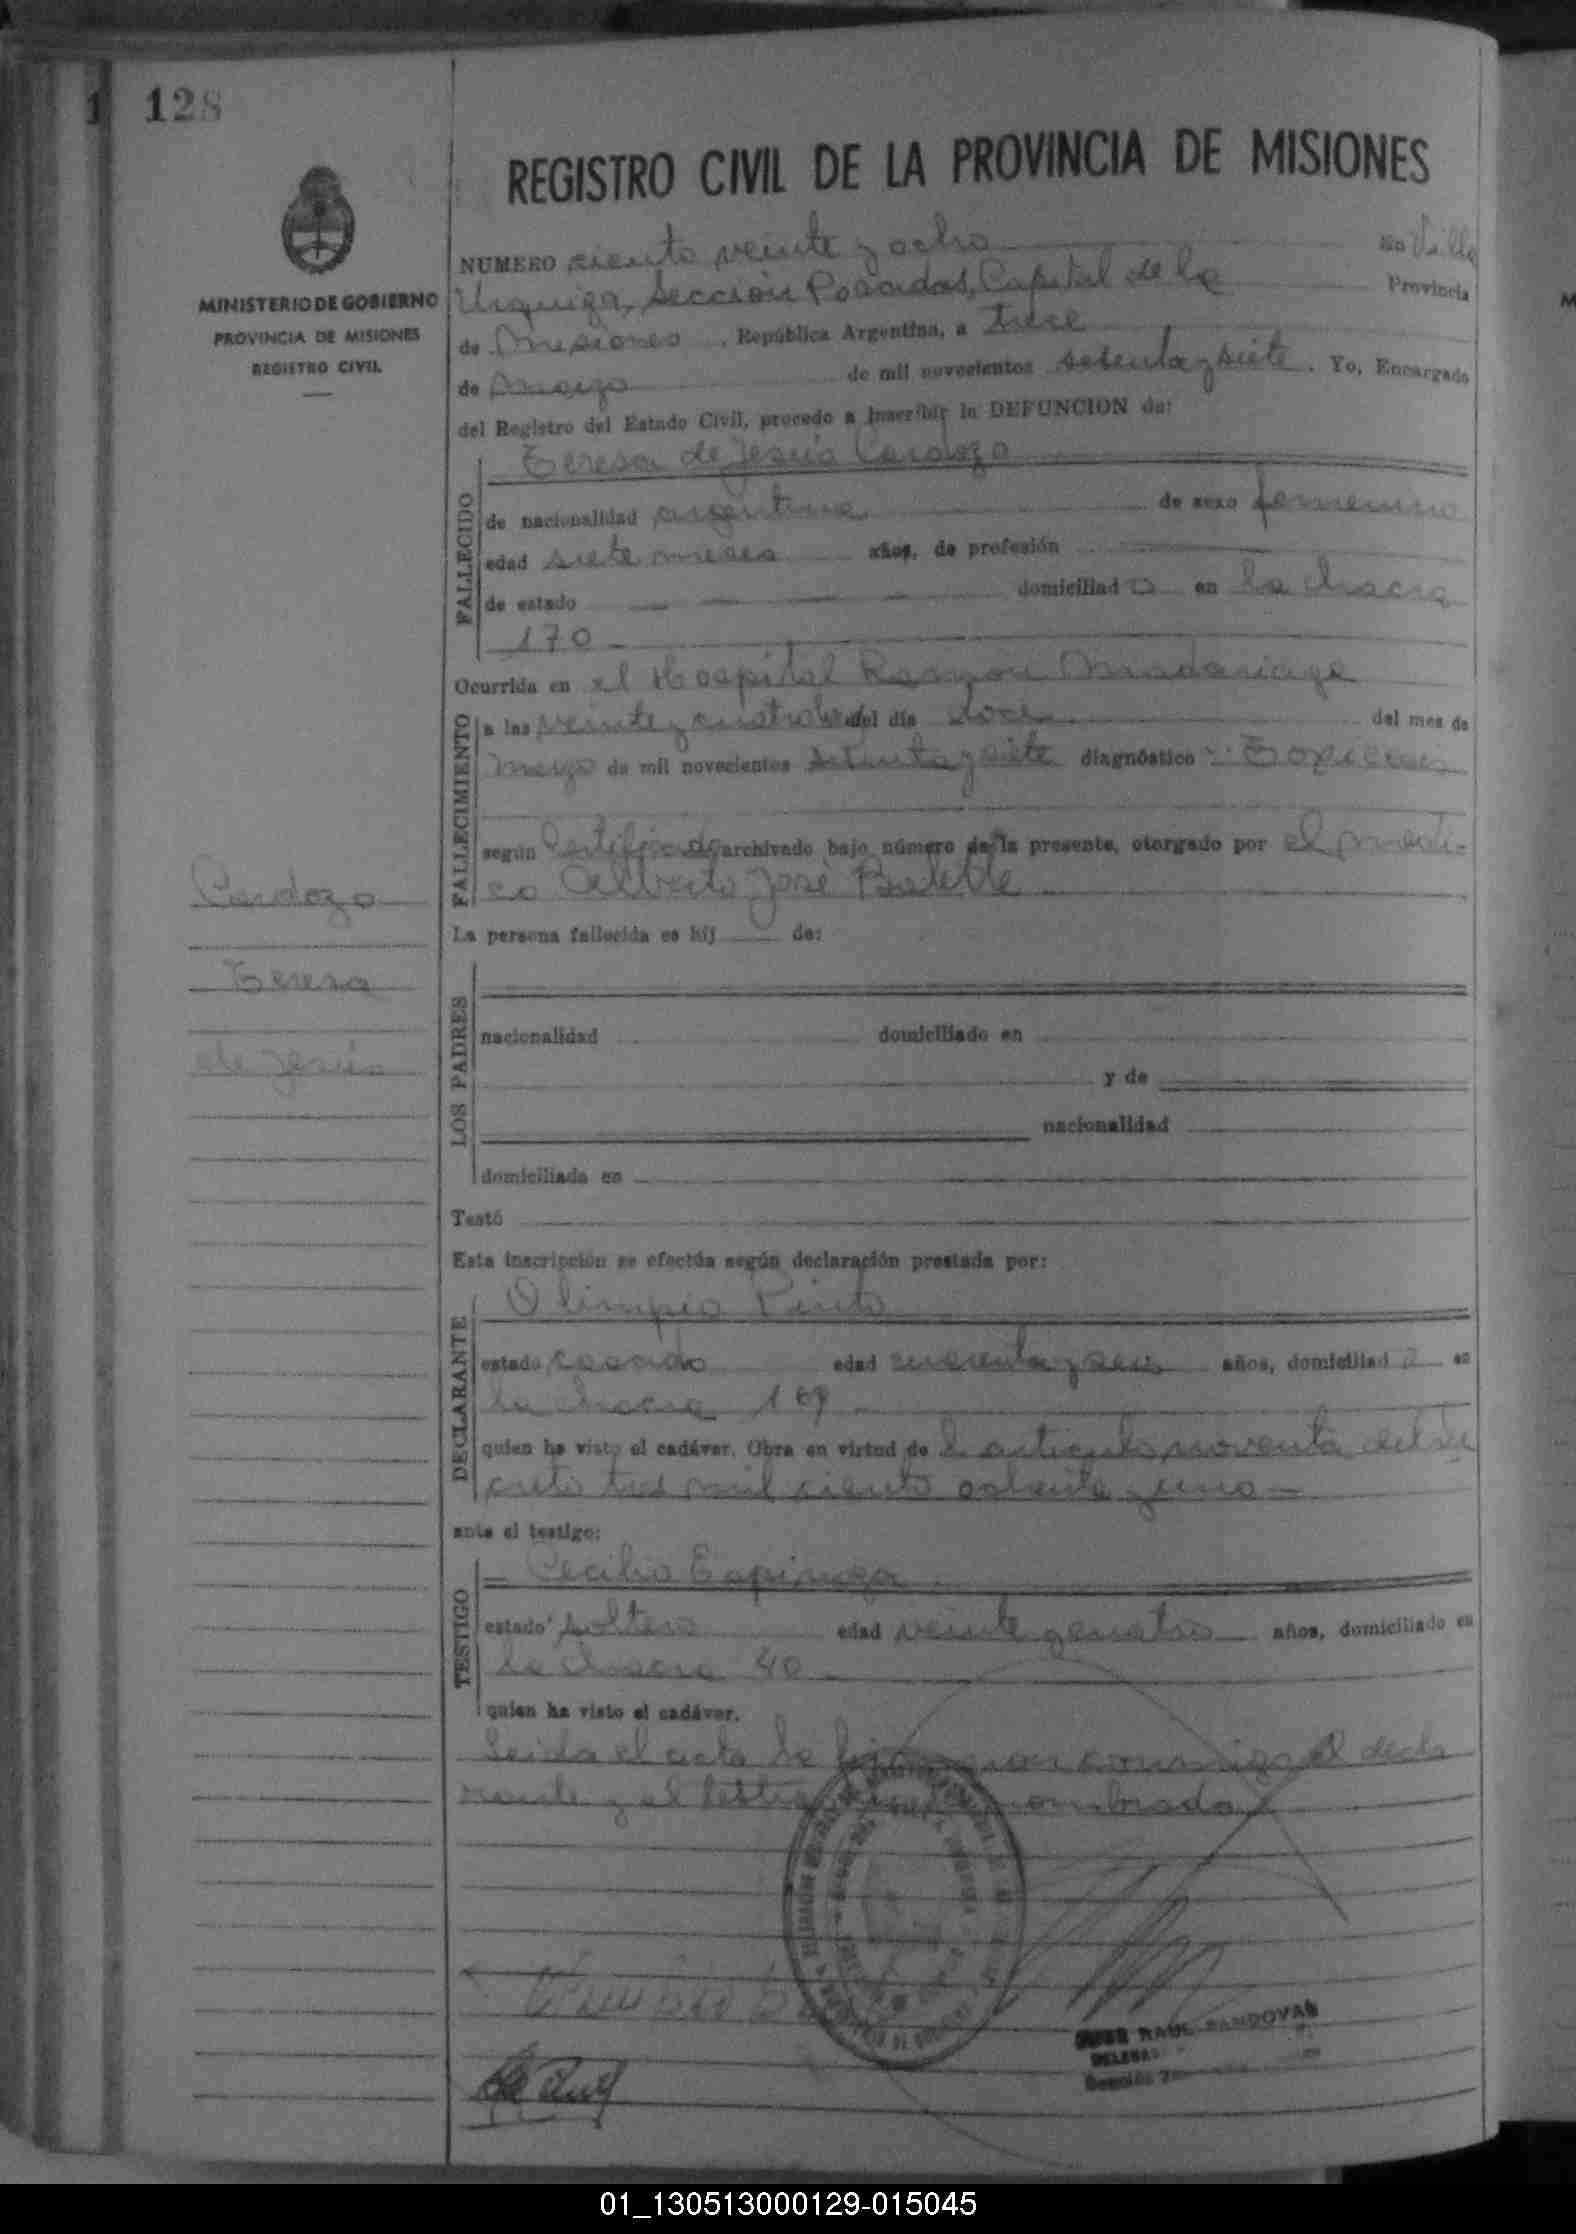 1 128
REGISTRO CIVIL DE LA PROVINCIA DE MISIONES
MINISTERIO DE GOBIERNO
PROVINCIA DE MISIONES
REGISTRO CIVIL
NUMERO ciento veinte y ocho En Villa
Urquiza, Sección Posadas, Capital de la Provincia
de Misiones, República Argentina, a trece
de marzo de mil novecientos setenta y siete. Yo, Encargado
del Registro del Estado Civil, procedo a inscribir la DEFUNCION de:
FALLECIDO
Teresa de Jesús Cardozo
de nacionalidad argentina de sexo femenino
edad siete meses años, de profesión
de estado domiciliad a en la chacra
170
Ocurrida en el Hospital Ramón Madariaga
FALLECIMIENTO
a las veinte y cuatro del día doce del mes de
marzo de mil novecientos setenta y siete diagnóstico
según certificado archivado bajo número de la presente, otorgado por el médi-
co Alberto José
Cardozo
Teresa
de Jesús
La persona fallecida es hij de:
LOS PADRES
nacionalidad domiciliado en
y de
nacionalidad
domiciliada en
Testó
Esta inscripción se efectúa según declaración prestada por:
DECLARANTE
Olimpio Pinto
estado casado edad años, domiciliad o en
la chacra 169
quien ha visto el cadáver. Obra en virtud de l artículo noventa del de
creto tres mil ciento ochenta y uno
ante el testigo:
TESTIGO
Cecilio Espinoza
estado soltero edad veinte y cuatro años, domiciliado en
la chacra 40
quien ha visto el cadáver.
Leida el acta la firman conmigo el decla
rante y el testigo nombrado
JOSE RAUL SANDOVAL
01_130513000129-015045